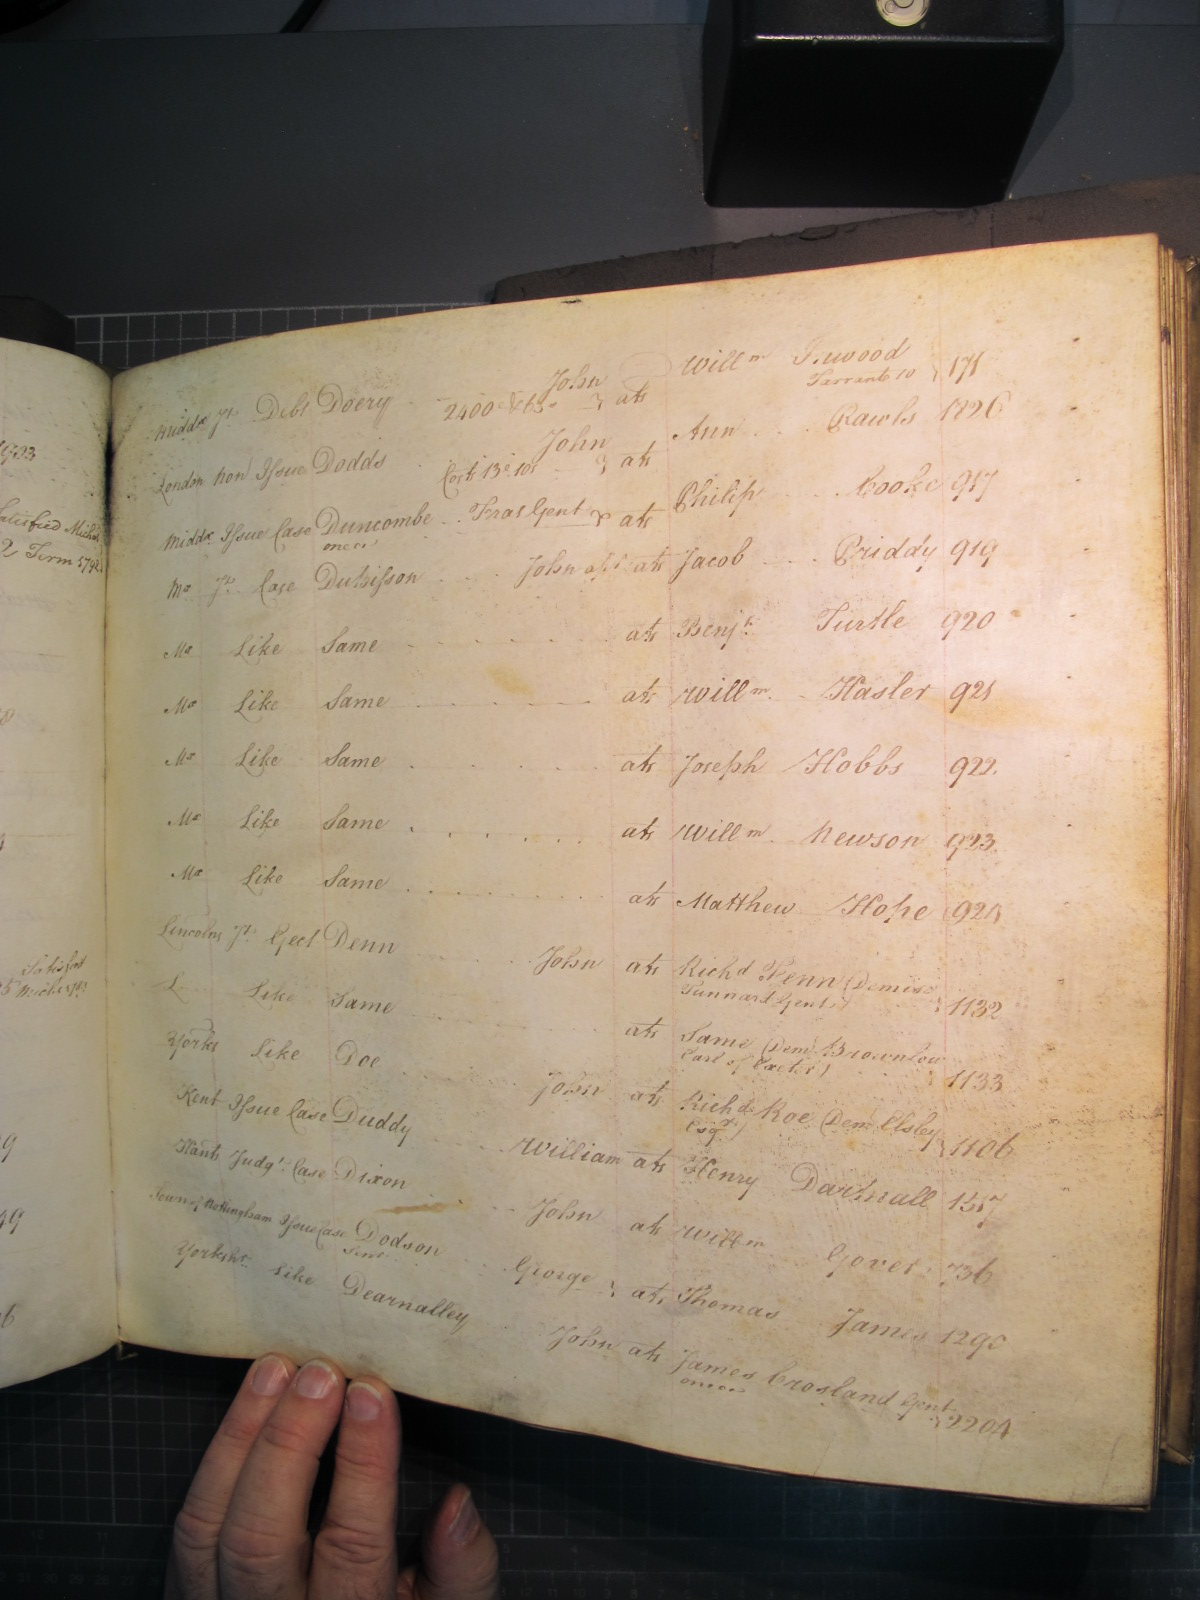 Middx Jt. Debt Doery 2400 & 63s John ats Willm Inwood Tarrant 10 171
London Non Issue Dodds Costs 13£ 10s John ats Ann Rawls 1826
Middx Issue Case Duncombe Fras Gent ats Philip Cooke 917
one &c
Mx Jt. Case Duhisson John ats Jacob Priddy 919
Mx Like Same ats Benjn. Turtle 920
Mx Like Same ats Willm. Hasler 921
Mx Like Same ats Joseph Hobbs 922.
Mx Like Same ats Willm. Newson 923.
Mx Like Same ats Matthew Hope 924
Lincolns Jt. Eject Denn John ats Richd Fenn (Demise
Tunnard Gent.) 1132
L Like Same ats Same (Dem. Brownlow
Earl of Exeter) 1133
Yorks Like Doe John ats Richd. Roe (Dem Elsley
Esqr.) 1106
Kent Issue Case Duddy William ats Henry Dartnall 1517
Hants Judgt. Case Dixon John ats Willm. Gover 736
Town of Nottingham Issue Case Dodson George ats Thomas James 1290
Senr.
Yorkshr. Like Dearnalley John ats James Crosland Gent.
one &c 2204
1923
Satisfied Michs
Term 1792
Satisfied